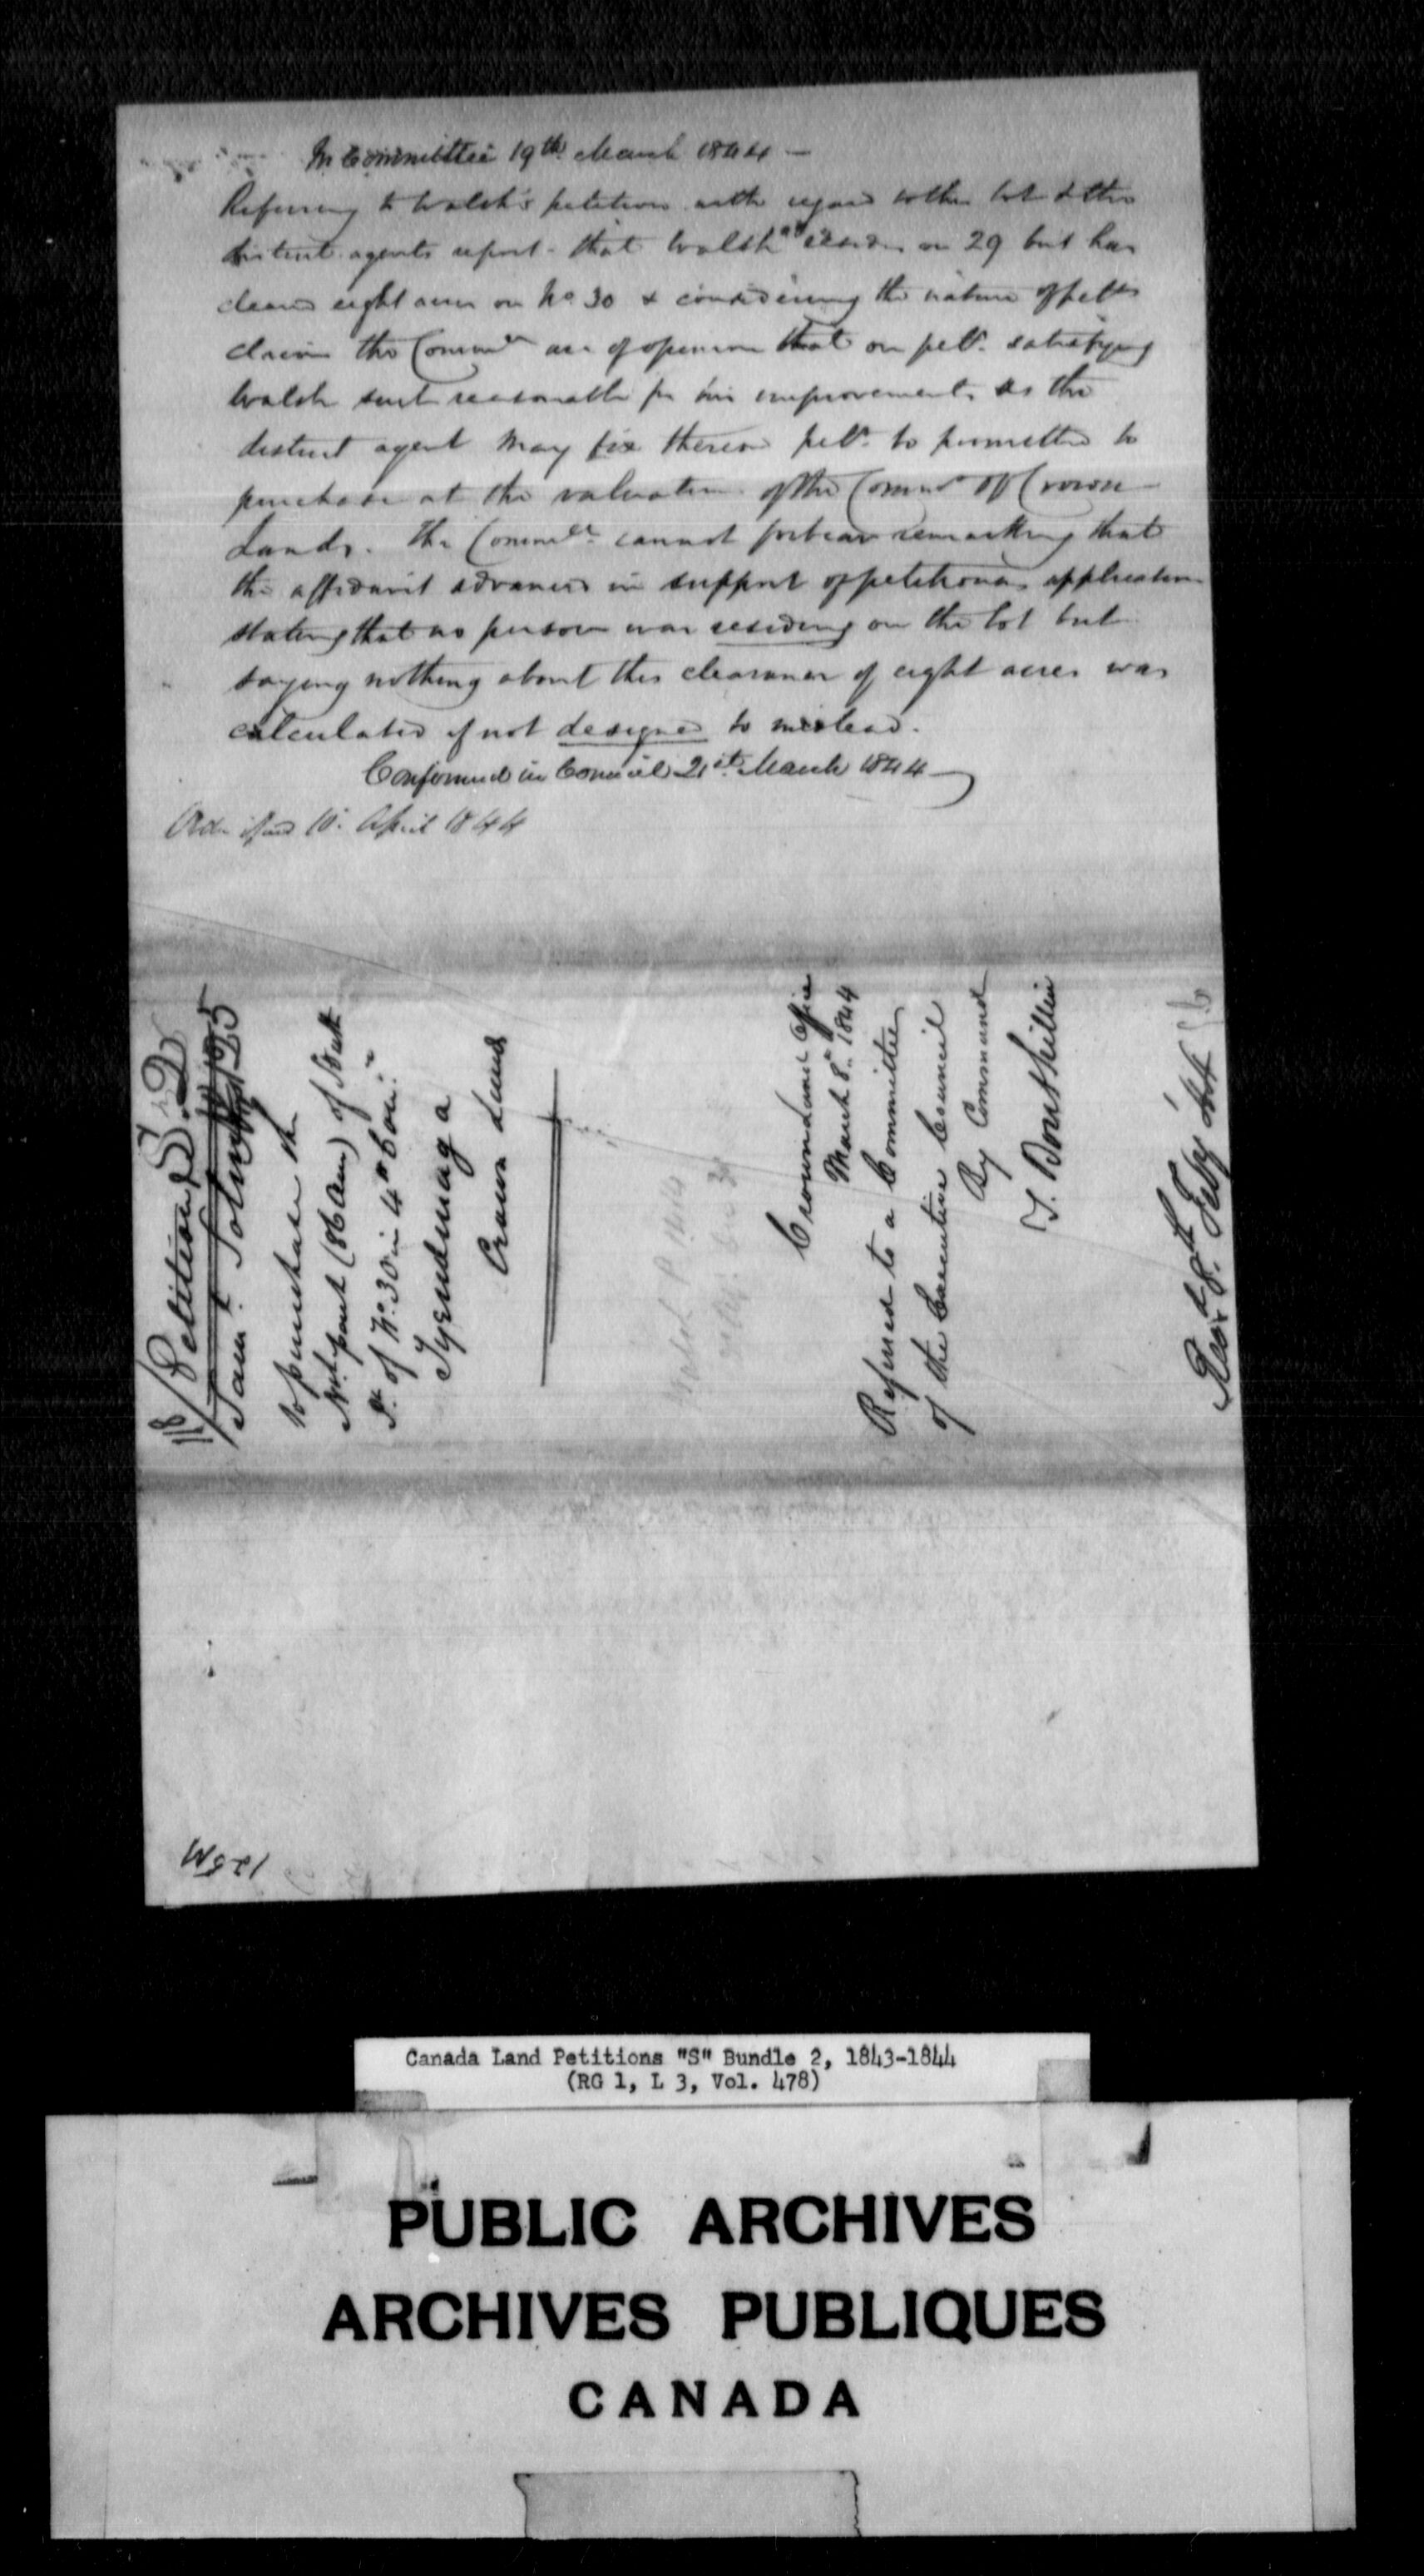 In Committee 19th March 1844 —
Referring to Walsh's petition with regard to this lot & the
district agents report - that Walsh resides on 29 but has
cleared eight acres on No 30 & considering the nature of petrs
claim the Committe are of opinion that on petr satisfying
Walsh such reasonable for his improvements as the
district agent may fix thereon petr be permitted to
purchase at the valuation of the Commr of Crown
Lands. The Committe cannot forbear remarking that
the affidavit advanced in support of petitioners application
stating that no person was residing on the lot but
saying nothing about the clearance of eight acres was
calculated if not designed to mislead.
Confirmed in Council 21st March 1844
Order issd 10 April 1844
Petition S. 2
Saml
to purchase the
part (86 acres) of South
Pt. of No. 30 in 4th Con:
Tyendinaga
Crown Lands
Crown Lands Office
March 8 1844
Referred to a Committee
of the Executive Council
By Command
T. Bouthillier
Recd 8th Feby 1844
Canada Land Petitions "S" Bundle 2, 1843-1844
(RG 1, L 3, Vol. 478)
PUBLIC ARCHIVES
ARCHIVES PUBLIQUES
CANADA